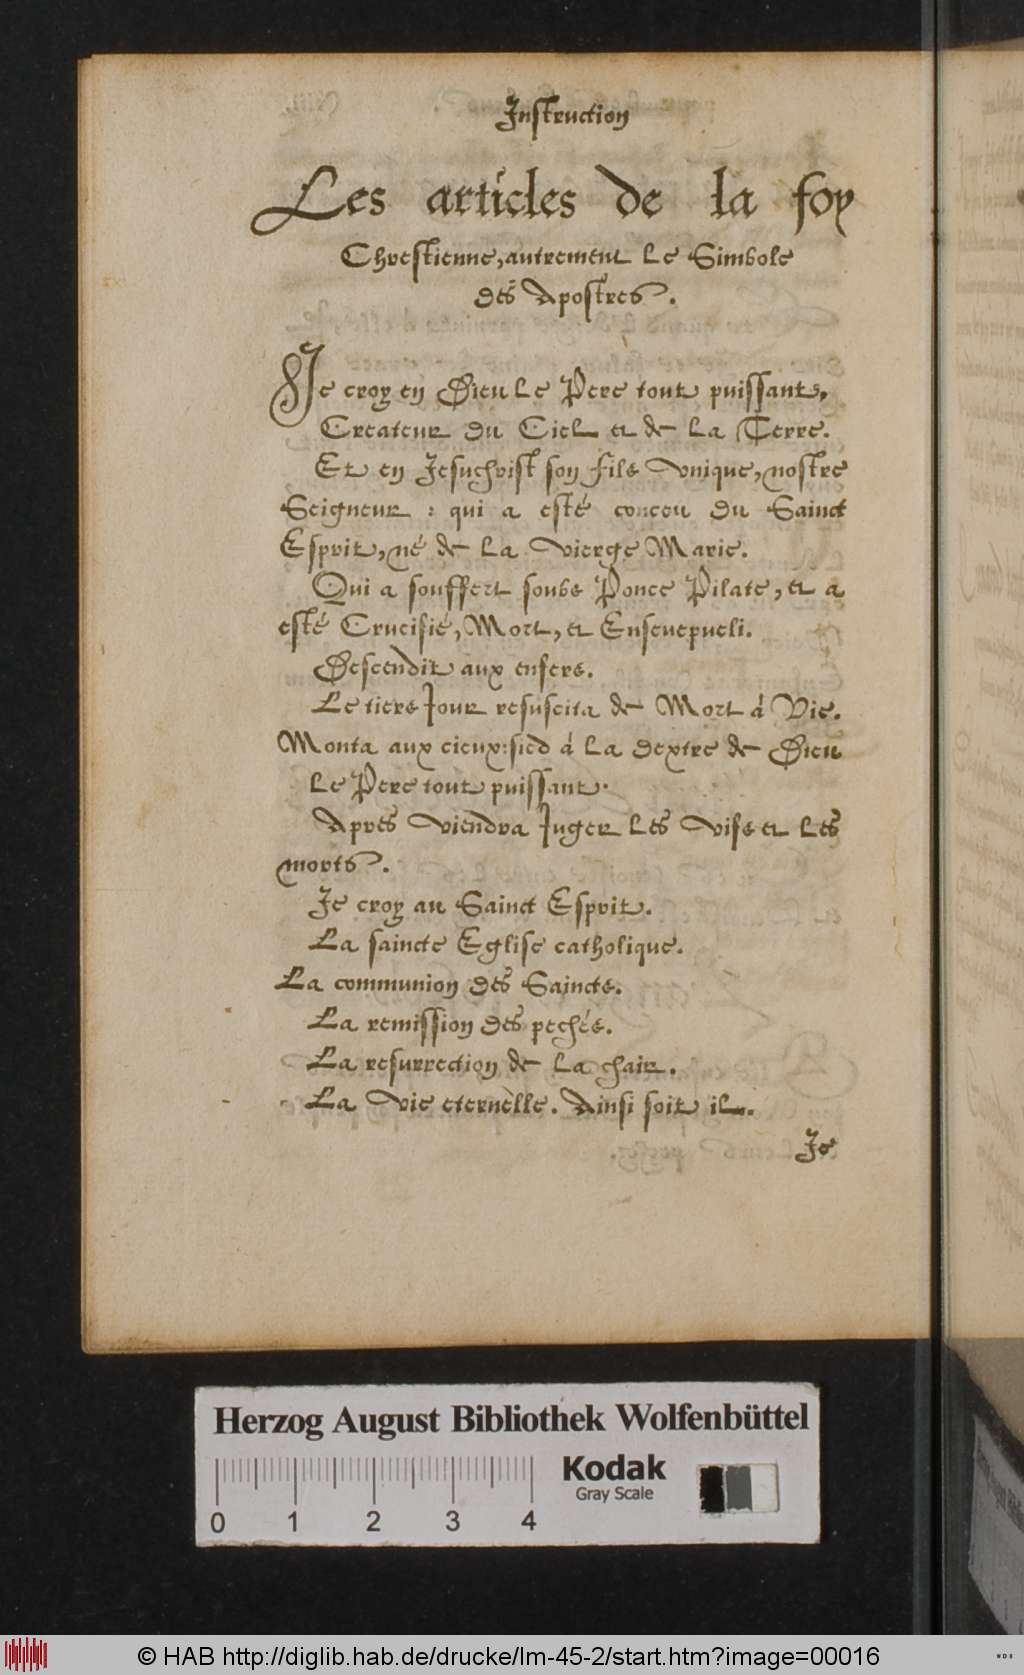 Instruction
Les articles de la foy
Chrestienne, autrement le Simbole
des Apostres.
Je croy en Dieu le Pere tout puissant,
Createur du Ciel et de la Terre.
Et en Jesuchrist son fils unique, nostre
Seigneur : qui a esté conceu du Sainct
Esprit, né de la vierge Marie.
Qui a souffert soubs Ponce Pilate, et a
esté Crucifié, Mort, et Ensevepveli.
Descendit aux enfers.
Le tiers Jour resuscita de Mort á Vie.
Monta aux cieux: sied á la dextre de Dieu
le Pere tout puissant.
Apres viendra Juger les vifs et les
morts.
Je croy au Sainct Esprit.
La saincte Eglise catholique.
La communion des Saincts.
La remission des pechés.
La resurrection de la chair.
La vie eternèlle. Ainsi soit il.
Je
Herzog August Bibliothek Wolfenbüttel
Kodak
Gray Scale
0 1 2 3 4
© HAB http://diglib.hab.de/drucke/lm-45-2/start.htm?image=00016